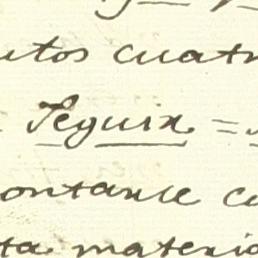 utos cuatr
Seguix =
ontanse c
ta materia